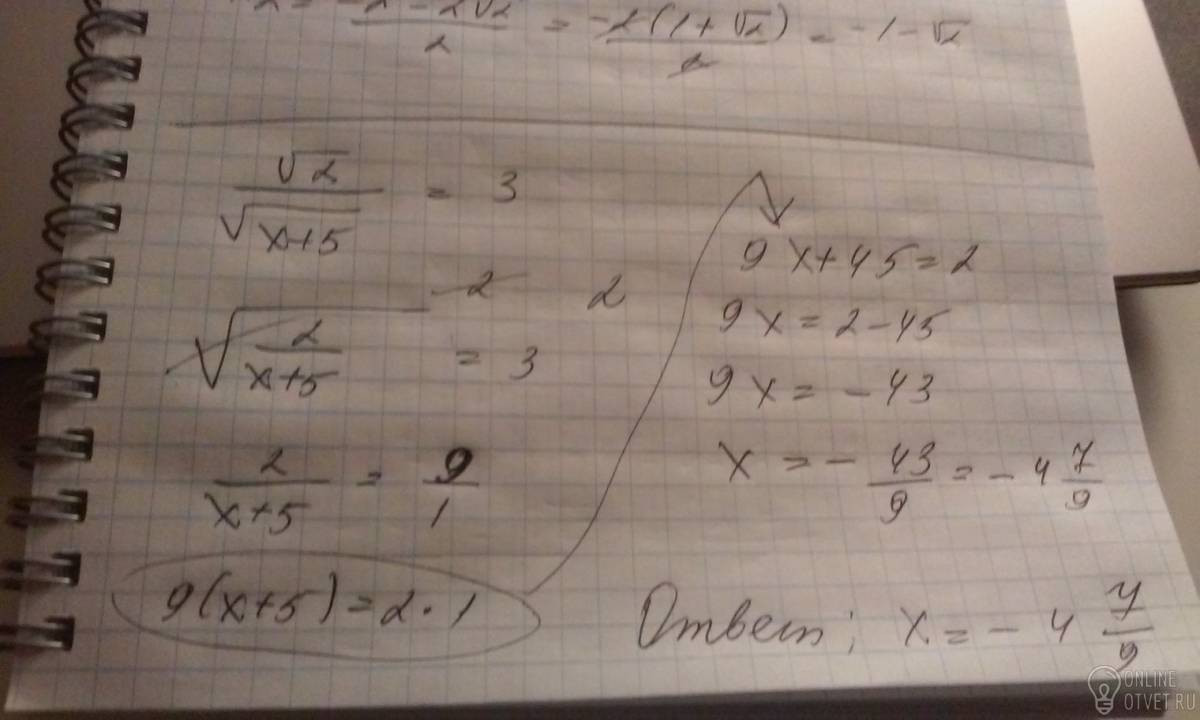 = -2 - 2√2 / 2 = -2(1 + √2) / 2 = -1 - √2
√2 / √(x+5) = 3
√(2 / (x+5))² = 3²
2 / (x+5) = 9 / 1
9(x+5) = 2 · 1
9x + 45 = 2
9x = 2 - 45
9x = -43
x = - 43/9 = -4 7/9
Ответ; x = -4 7/9
ONLINE
OTVET.RU